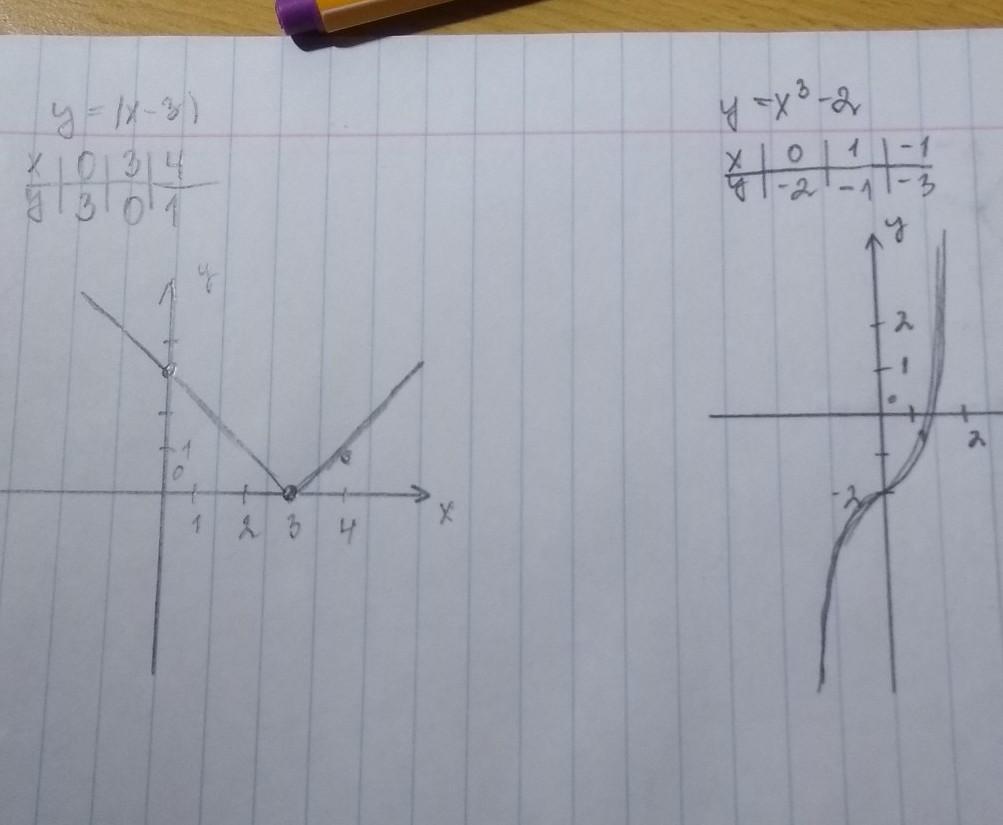 y = |x-3|
x | 0 | 3 | 4
y | 3 | 0 | 1
y
1
0
1 2 3 4 x
y = x³ - 2
x | 0 | 1 | -1
y | -2 | -1 | -3
y
2
1
0
2
-2